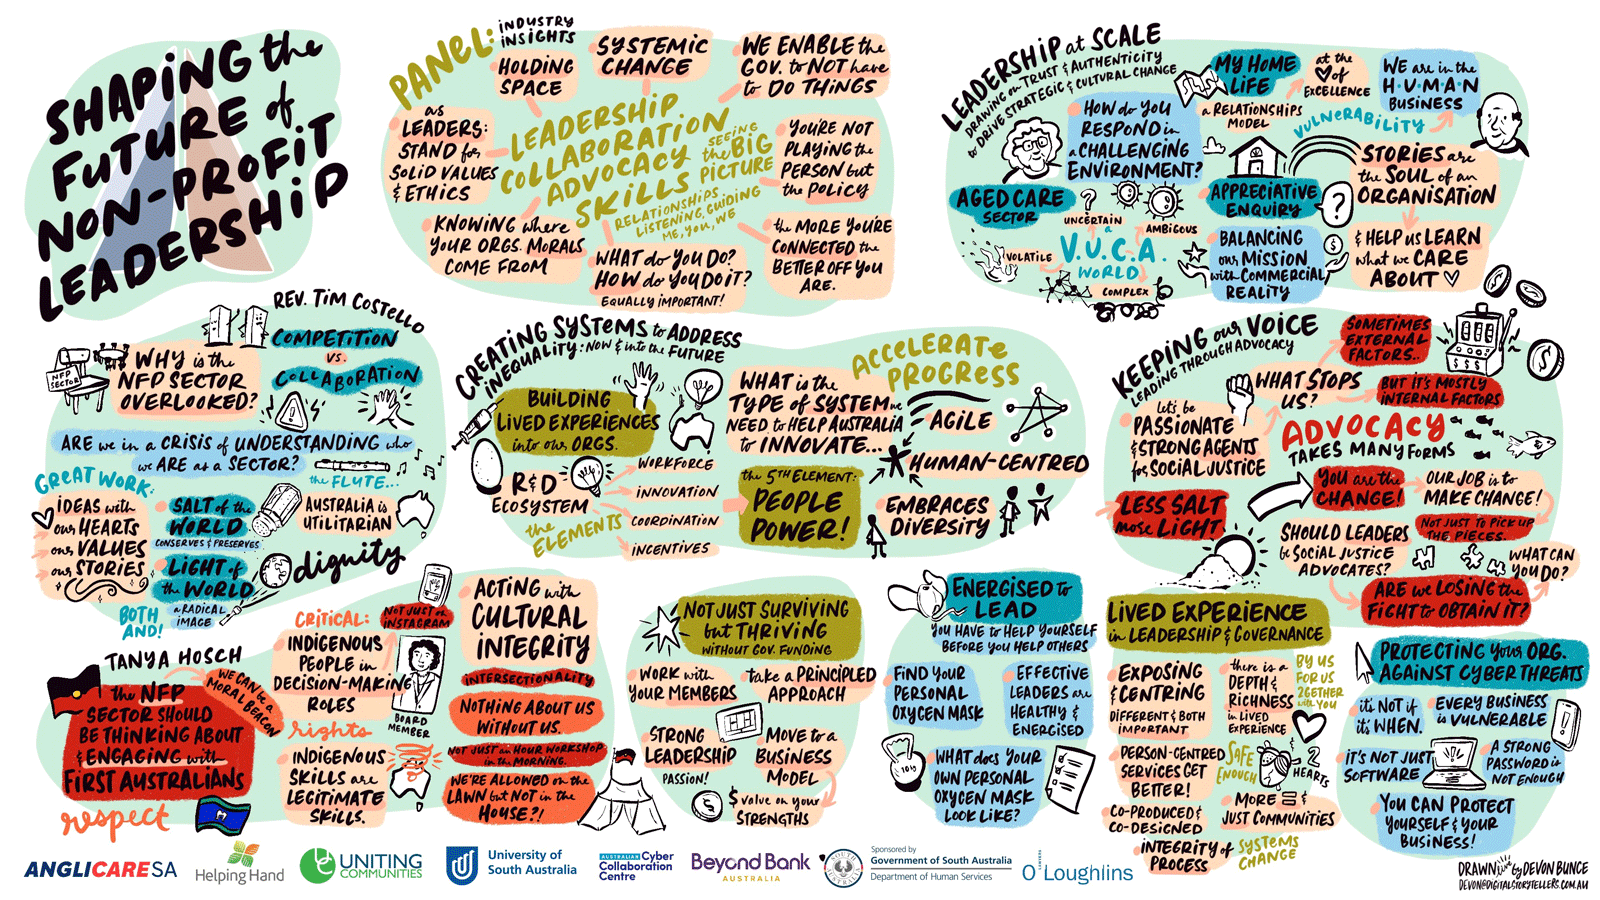 SHAPING the
FUTURE of
NON-PROFIT
LEADERSHIP
PANEL:
INDUSTRY
INSIGHTS
HOLDING
SPACE
SYSTEMIC
CHANGE
WE ENABLE the
GOV. to NOT have
to DO THINGS
as
LEADERS:
STAND for
SOLID VALUES
& ETHICS
LEADERSHIP
COLLABORATION
ADVOCACY
SKILLS
SEEING
the BIG
PICTURE
RELATIONSHIPS
LISTENING, GUIDING
ME, YOU, WE
YOU'RE NOT
PLAYING the
PERSON but
the POLICY
KNOWING where
YOUR ORGS. MORALS
COME FROM
WHAT do YOU DO?
HOW do YOU DO iT?
EQUALLY IMPORTANT!
the MORE YOU'RE
CONNECTED the
BETTER OFF YOU
ARE.
LEADERSHIP at SCALE
DRAWING on TRUST & AUTHENTICITY
to DRIVE STRATEGIC & CULTURAL CHANGE
HOW do YOU
RESPOND in
a CHALLENGING
ENVIRONMENT?
MY HOME
LIFE
a RELATIONSHIPS
MODEL
at the
of
EXCELLENCE
WE are in the
H·U·M·A·N
BUSINESS
VULNERABILITY
AGED CARE
SECTOR
UNCERTAIN
a
V.U.C.A.
WORLD
AMBIGOUS
VOLATILE
COMPLEX
APPRECIATIVE
ENQUIRY
?
BALANCING
our MISSION
with COMMERCIAL
REALITY
STORIES are
the SOUL of an
ORGANISATION
& HELP us LEARN
what we CARE
ABOUT
REV. TIM COSTELLO
NFP
SECTOR
WHY is the
NFP SECTOR
OVERLOOKED?
COMPETITION
VS.
COLLABORATION
ARE we in a CRISIS of UNDERSTANDING who
we ARE as a SECTOR?
the FLUTE...
GREAT WORK:
IDEAS with
our HEARTS
our VALUES
our STORIES
SALT of the
WORLD
CONSERVES & PRESERVES
LIGHT of
the WORLD
a RADICAL
IMAGE
BOTH
AND!
AUSTRALIA is
UTILITARIAN
dignity
CREATING SYSTEMS to ADDRESS
INEQUALITY: NOW & into the FUTURE
BUILDING
LIVED EXPERIENCES
into our ORGS.
R&D
ECOSYSTEM
the
ELEMENTS
WORKFORCE
INNOVATION
COORDINATION
INCENTIVES
WHAT is the
TYPE of SYSTEM we
NEED to HELP AUSTRALIA
to INNOVATE...
the 5TH ELEMENT:
PEOPLE
POWER!
ACCELERATE
PROGRESS
AGILE
HUMAN-CENTRED
EMBRACES
DIVERSITY
KEEPING our VOICE
LEADING THROUGH ADVOCACY
SOMETIMES
EXTERNAL
FACTORS..
WHAT STOPS
US?
BUT IT'S MOSTLY
INTERNAL FACTORS
let's be
PASSIONATE
& STRONG AGENTS
for SOCIAL JUSTICE
ADVOCACY
TAKES MANY FORMS
LESS SALT
more LIGHT.
YOU are the
CHANGE!
OUR JOB is to
MAKE CHANGE!
NOT JUST to PICK UP
the PIECES.
SHOULD LEADERS
be SOCIAL JUSTICE
ADVOCATES?
WHAT CAN
YOU DO?
ARE we LOSING the
FIGHT to OBTAIN IT?
TANYA HOSCH
the NFP
SECTOR SHOULD
BE THINKING ABOUT
& ENGAGING with
FIRST AUSTRALIANS
WE CAN be a
MORAL BEACON
respect
CRITICAL:
NOT JUST on
INSTAGRAM
INDIGENOUS
PEOPLE in
DECISION-MAKING
ROLES
rights
BOARD
MEMBER
INDIGENOUS
SKILLS are
LEGITIMATE
SKILLS.
ACTING with
CULTURAL
INTEGRITY
INTERSECTIONALITY
NOTHING ABOUT US
WITHOUT US.
NOT JUST an HOUR WORKSHOP
in the MORNING.
WE'RE ALLOWED on the
LAWN but NOT in the
HOUSE?!
NOT JUST SURVIVING
but THRIVING
WITHOUT GOV. FUNDING
WORK with
YOUR MEMBERS
take a PRINCIPLED
APPROACH
STRONG
LEADERSHIP
PASSION!
MOVE to a
BUSINESS
MODEL
$ value on your
STRENGTHS
ENERGISED to
LEAD
YOU HAVE to HELP YOURSELF
BEFORE YOU HELP OTHERS
FIND YOUR
PERSONAL
OXYGEN MASK
EFFECTIVE
LEADERS are
HEALTHY &
ENERGISED
WHAT does YOUR
OWN PERSONAL
OXYGEN MASK
LOOK LIKE?
LIVED EXPERIENCE
in LEADERSHIP & GOVERNANCE
EXPOSING
& CENTRING
DIFFERENT & BOTH
IMPORTANT
there is a
DEPTH &
RICHNESS
in LIVED
EXPERIENCE
BY US
FOR US
2GETHER
with YOU
PERSON-CENTRED
SERVICES GET
BETTER!
SAFE
ENOUGH
2
HEARTS
CO-PRODUCED &
CO-DESIGNED
MORE = &
JUST COMMUNITIES
INTEGRITY of
PROCESS
SYSTEMS
CHANGE
PROTECTING your ORG.
AGAINST CYBER THREATS
it's NOT if
it's WHEN.
EVERY BUSINESS
is VULNERABLE
IT'S NOT JUST
SOFTWARE
A STRONG
PASSWORD is
NOT ENOUGH
YOU CAN PROTECT
YOURSELF & YOUR
BUSINESS!
ANGLICARE SA
Helping Hand
UNITING
COMMUNITIES
University of
South Australia
AUSTRALIAN Cyber
Collaboration
Centre
Beyond Bank
AUSTRALIA
Sponsored by
Government of South Australia
Department of Human Services
O'Loughlins
LAWYERS
DRAWN live by DEVON BUNCE
DEVON@DIGITALSTORYTELLERS.COM.AU